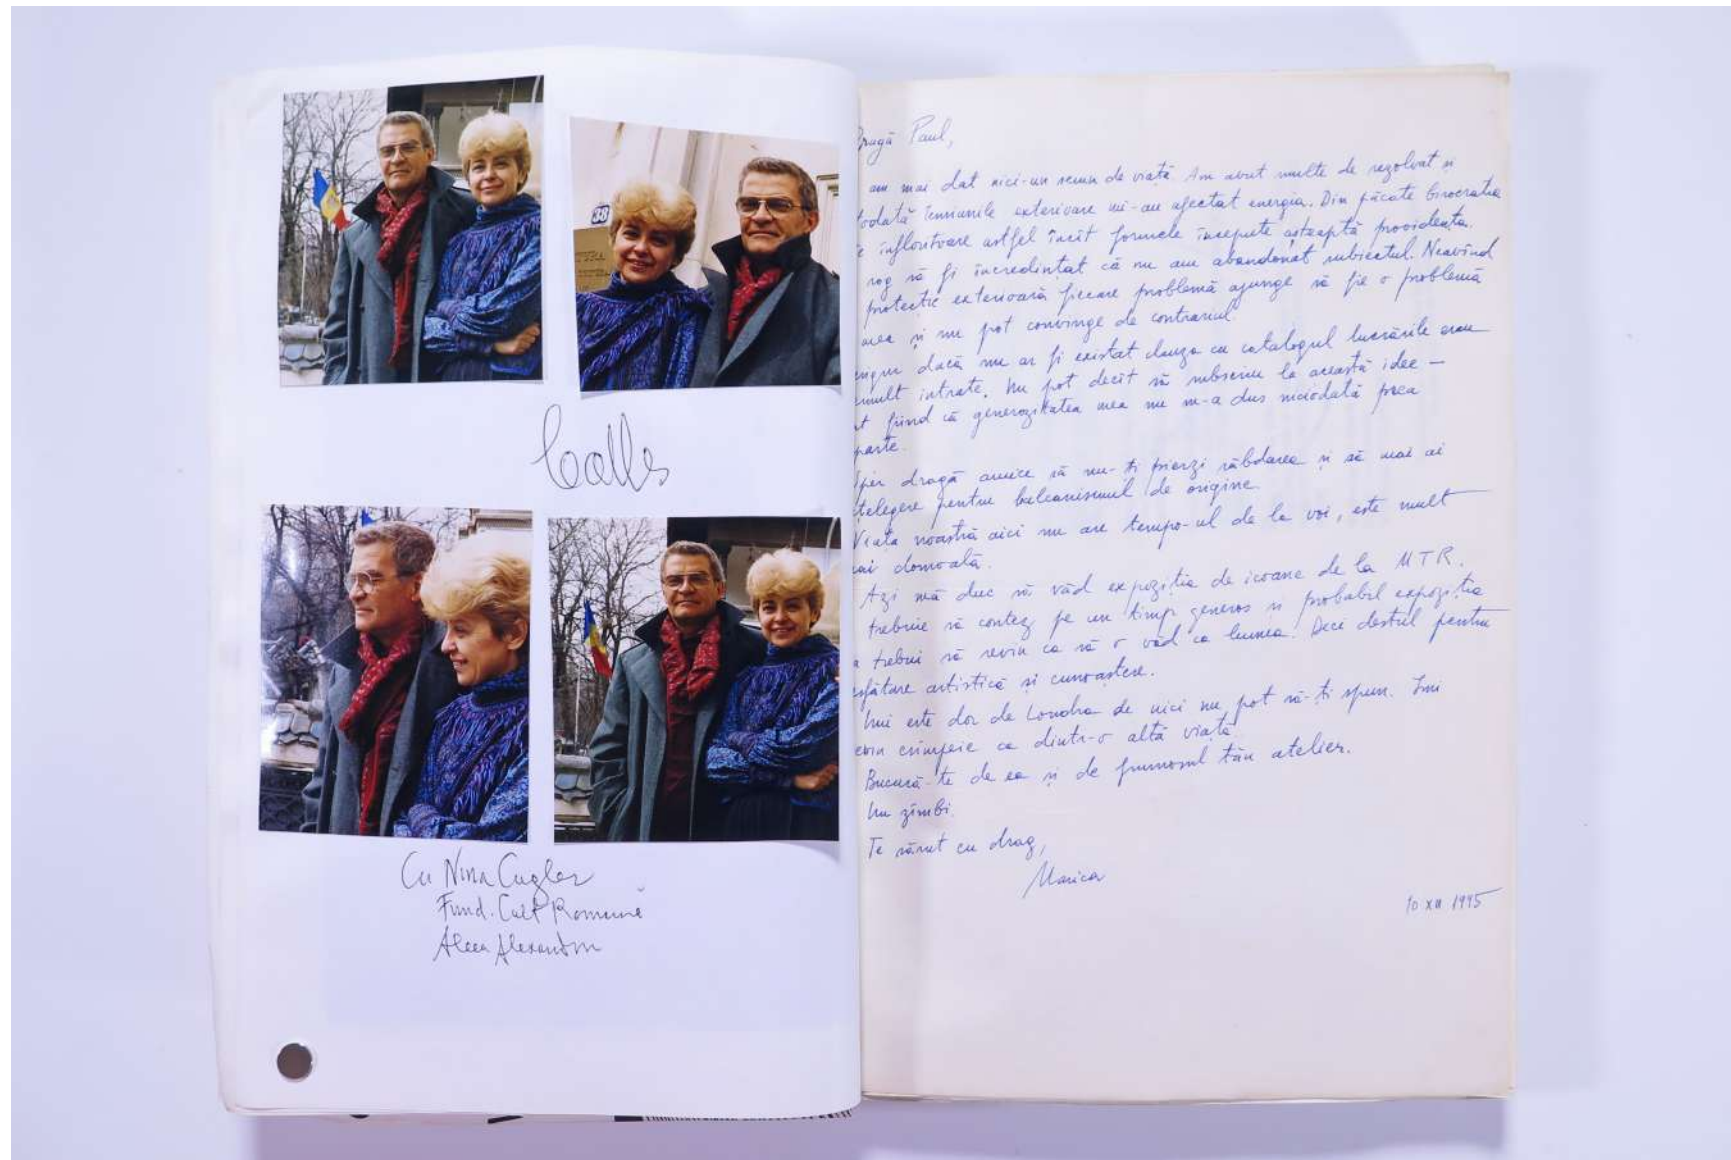 38
Cu Nina Cugler
Fund. Cult Română
Aleea Alexandru
Dragă Paul,
am mai dat nici-un semn de viață. Am avut multe de rezolvat și
todată tensiunile exterioare mi-au afectat energia. Din păcate birocratia
infloritoare astfel încît formele începute așteaptă providența.
rog să fi încredințat că nu am abandonat subiectul. Neavînd
protectie exterioară fiecare problemă ajunge să fie o problemă
mea și nu pot convinge de contrariul.
dacă nu ar fi existat clauza cu catalogul lucrările erau
demult intrate. Nu pot decît să subscriu la această idee —
fiind că generozitatea mea nu m-a dus niciodată prea
parte.
Sper dragă amice să nu-ți pierzi răbdarea și să mai ai
țelegere pentru balcanismul de origine.
Viata noastră aici nu are tempo-ul de la voi, este mult
mai domoală.
Azi mă duc să văd expoziția de icoane de la MTR.
trebuie să contez pe un timp generos si probabil expoziția
trebui să revin ca să o văd ca lumea. Deci destul pentru
sfătare artistică și cunoaștere.
Imi este dor de Londra de nici nu pot să-ți spun. Imi
crîmpeie ca dintr-o altă viață.
Bucură-te de ea și de frumosul tău atelier.
Un zîmbi.
Te sărut cu drag,
Marica
10 XII 1995